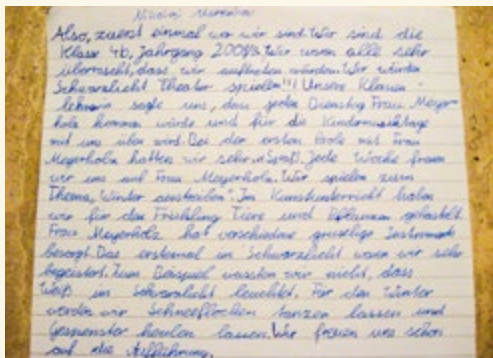 Nikolaj
Also, zuerst einmal wer wir sind. Wir sind die
Klasse 4b, Jahrgang 2007/8. Wir waren alle sehr
überrascht, dass wir auftreten würden. Wir würden
Schwarzlicht Theater spielen!!! Unsere Klassen-
lehrerin sagte uns, dass jeden Dienstag Frau Meyer-
holz kommen würde und für die Kindermusiktage
mit uns üben wird. Bei der ersten Probe mit Frau
Meyerholz hatten wir sehr viel Spaß. Jede Woche freuen
wir uns auf Frau Meyerholz. Wir spielen zum
Thema „Winter austreiben". Im Kunstunterricht haben
wir für den Frühling Tiere und Pflanzen gebastelt.
Frau Meyerholz hat verschiedene gruselige Instrumente
besorgt. Das erstemal im Schwarzlicht waren wir sehr
begeistert. Zum Beispiel wussten wir nicht, dass
Weiß im Schwarzlicht leuchtet. Für den Winter
werden wir Schneeflocken tanzen lassen und
Gespenster heulen lassen. Wir freuen uns schon
auf die Aufführung.